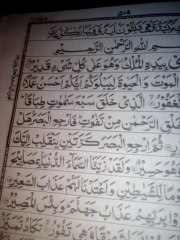 ٥٠٩
مَكِّيَّةٌ وَّهِيَ ثَلٰثُوْنَ اٰيَةً
بِسْمِ اللّٰهِ الرَّحْمٰنِ الرَّحِيْمِ
بِيَدِهِ الْمُلْكُ وَهُوَ عَلٰى كُلِّ شَيْءٍ قَدِيْرُ
الْمَوْتَ وَالْحَيٰوةَ لِيَبْلُوَكُمْ اَيُّكُمْ اَحْسَنُ عَمَلًا
الْغَفُوْرُ الَّذِيْ خَلَقَ سَبْعَ سَمٰوٰتٍ طِبَاقًا
خَلْقِ الرَّحْمٰنِ مِنْ تَفٰوُتٍ فَارْجِعِ الْبَصَرَ هَلْ
ثُمَّ ارْجِعِ الْبَصَرَ كَرَّتَيْنِ يَنْقَلِبْ اِلَيْكَ
وَّهُوَ حَسِيْرٌ وَلَقَدْ زَيَّنَّا السَّمَآءَ الدُّنْيَا بِمَصَابِيْحَ
رُجُوْمًا لِّلشَّيٰطِيْنِ وَاَعْتَدْنَا لَهُمْ عَذَابَ السَّعِيْرِ
بِرَبِّهِمْ عَذَابُ جَهَنَّمَ وَبِئْسَ الْمَصِيْرُ
شَهِيْقًا وَّهِيَ تَفُوْرُ تَكَادُ تَمَيَّزُ